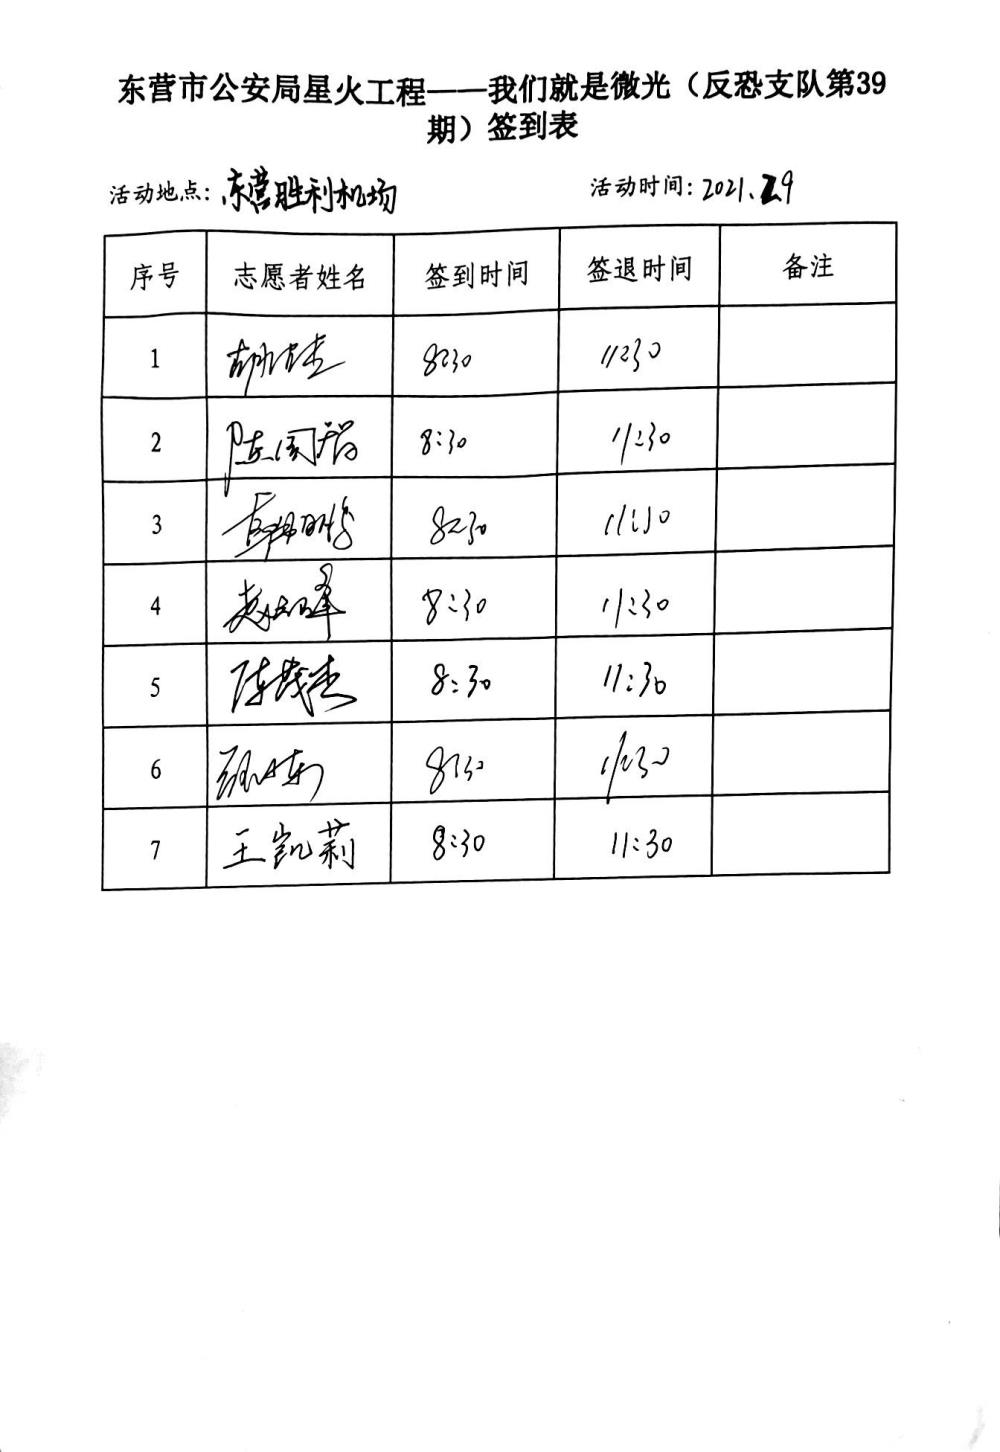 东营市公安局星火工程——我们就是微光（反恐支队第39
期）签到表
活动地点：东营胜利机场 活动时间：2021.2.9
序号 志愿者姓名 签到时间 签退时间 备注
1 8:30 11:30
2 陈国智 8:30 11:30
3 8:30 11:30
4 8:30 11:30
5 陈茂杰 8:30 11:30
6 8:30 11:30
7 王凯莉 8:30 11:30